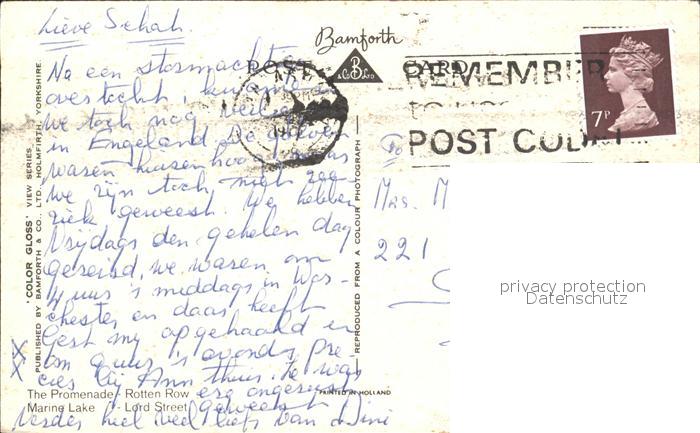 Lieve Schat.
Bamforth
POST CARD
& Co B Ltd
REMEMBER
POST CODE
7P
Na een stormachtige
overtocht, kwamen
we toch nog veilig
in Engeland. De golven
waren huizenhoog
we zijn toch niet zee
ziek geweest. We hebben
Vrijdags den gehelen dag
gereisd, we waren om
4 uur 's middags in
chester en daar heeft
Gest my opgehaald en
om 9 uur 's avonds pre-
cies bij Ann thuis. Ze was
erg
geweest
Verder heel veel liefs van Dini
To
Mrs. M
221
'COLOR GLOSS' VIEW SERIES
PUBLISHED BY BAMFORTH & CO., LTD. HOLMFIRTH, YORKSHIRE.
REPRODUCED FROM A COLOUR PHOTOGRAPH
PRINTED IN HOLLAND
The Promenade - Rotten Row
Marine Lake - Lord Street
privacy protection
Datenschutz